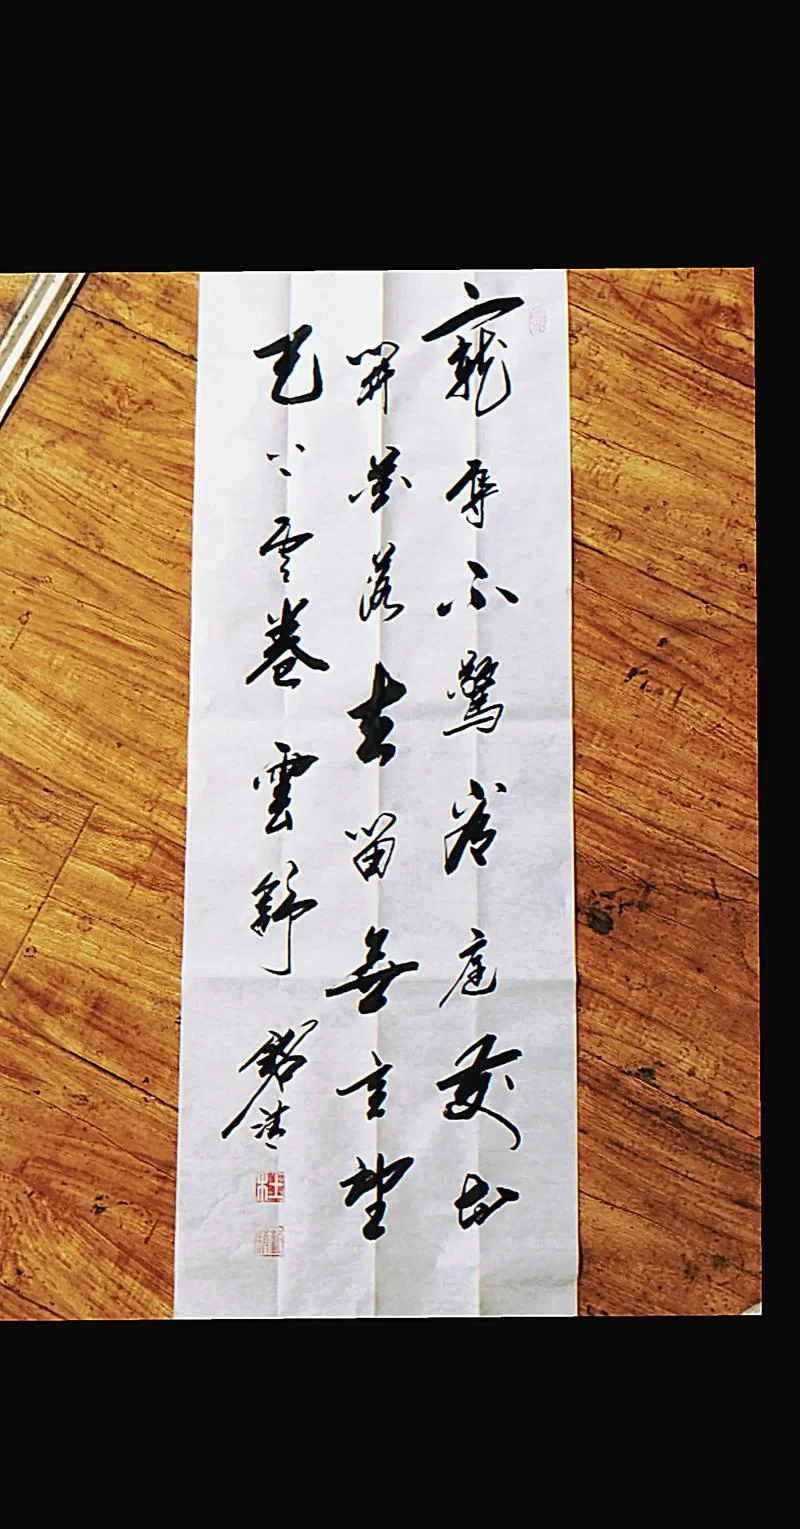 寵辱不驚看庭前花
開花落去留無意望
天上雲卷雲舒